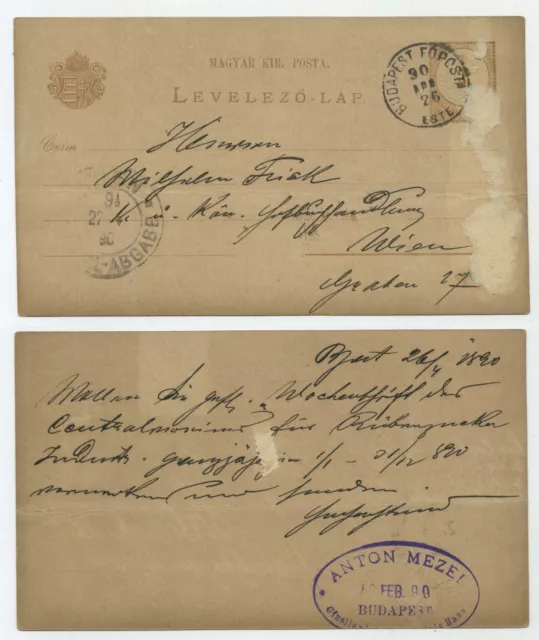 MAGYAR KIR. POSTA.
LEVELEZŐ-LAP.
BUDAPEST FŐPOSTA
90
26
ESTE
Czim
Herren
Wilhelm Frick
K. u. Kön. Hofbuchhandlung
Wien
Graben 27
27
90
ABGABE
Pest 26/4 1890
Wollen Sie gefl. Wochenschrift des
Centralvereines für Rübenzucker
Industr. ganzjährig 1/1 - 31/12 890
und senden
ANTON MEZEI
FEB. 90
BUDAPEST